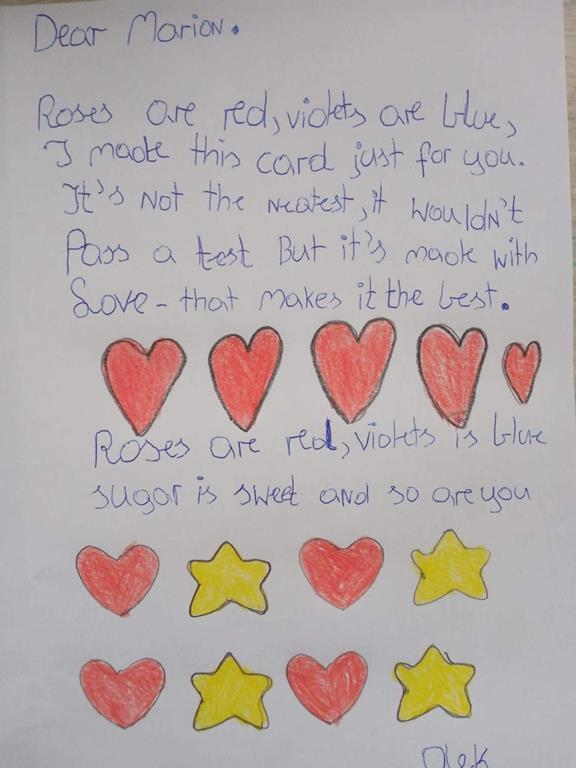 Dear Marion.
Roses are red, violets are blue,
I made this card just for you.
It's Not the Neatest, it wouldn't
Pass a test But it's made with
Love - that makes it the best.
Roses are red, violets is blue
sugar is sweet and so are you
Olek